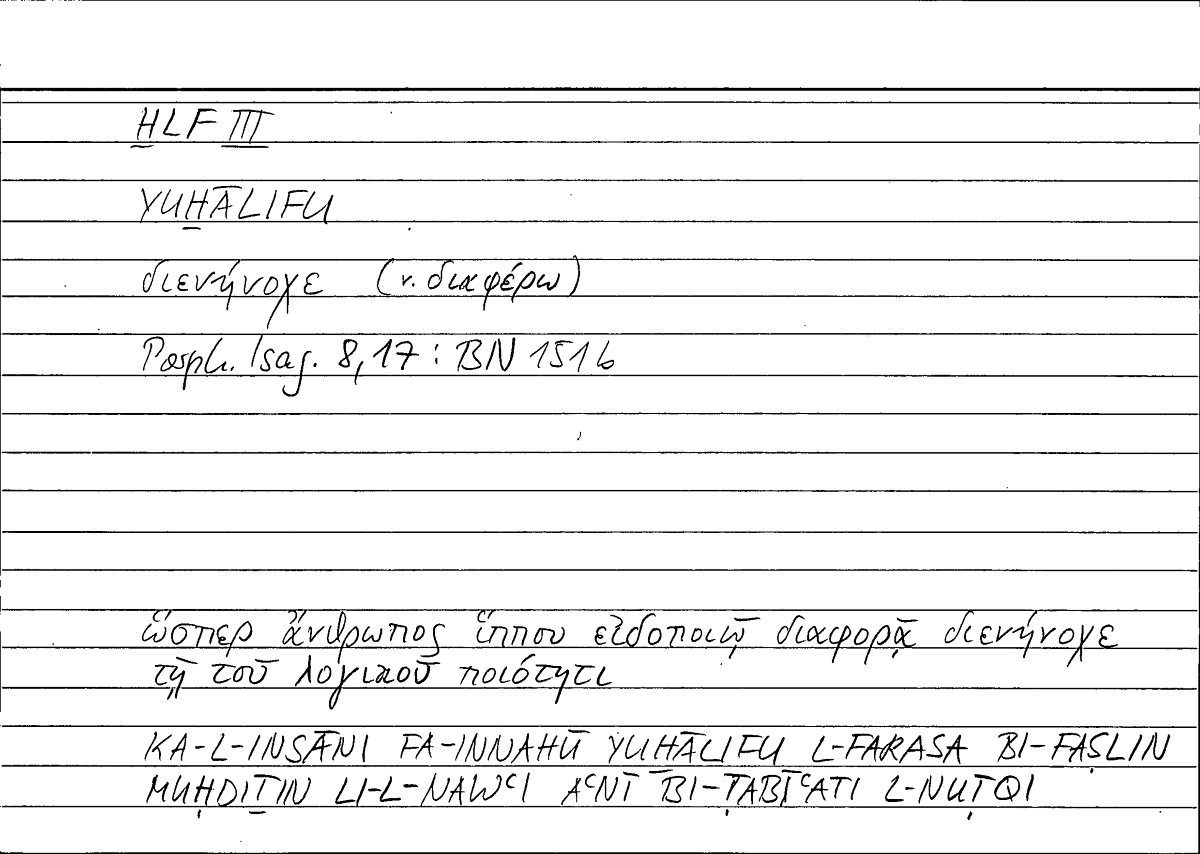 H̱LF III
YUH̱ĀLIFU
διενήνοχε (v. διαφέρω)
Porph. Isag. 8,17 : BN 151b
ὥσπερ ἄνθρωπος ἵππου εἰδοποιῷ διαφορᾷ διενήνοχε
τῇ τοῦ λογικοῦ ποιότητι
KA-L-INSĀNI FA-INNAHŪ YUH̱ĀLIFU L-FARASA BI-FAṢLIN
MUḤDIṮIN LI-L-NAWʿI AʿNĪ BI-ṬABĪʿATI L-NUṬQI